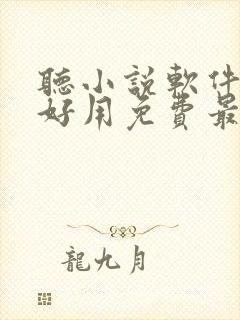 聽小說軟件
好用免費最
龍九月